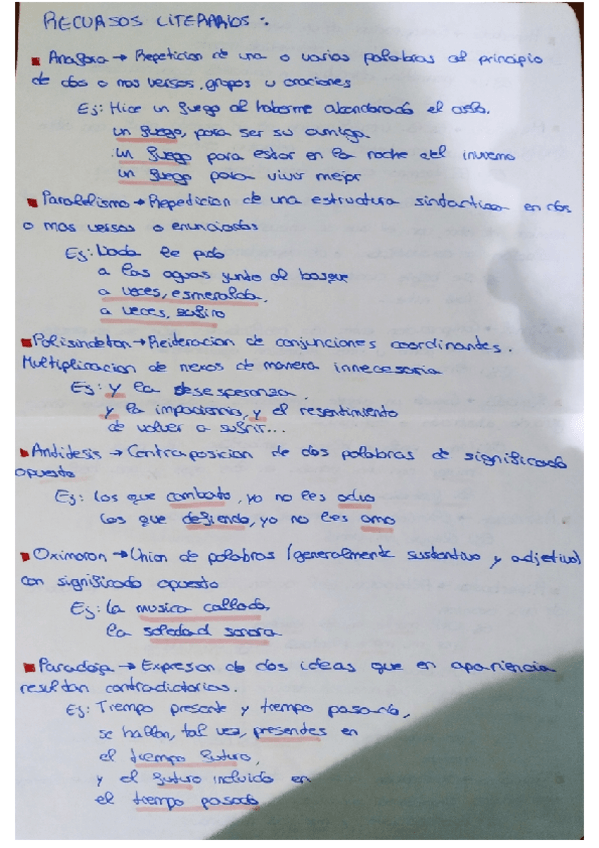 RECURSOS LITERARIOS:.
Anafora → Repeticion de una o varias palabras al principio
de dos o mas versos, grupos u oraciones
Ej: Hice un fuego al haberme abandonado el
un fuego, para ser su amigo
un fuego para estar en la noche del invierno
un fuego para vivir mejor
Paralelismo → Repeticion de una estructura sintactica en dos
o mas versos o enunciados
Ej: Nada le pido
a las aguas junto al bosque
a veces, esmeralda,
a veces, zafiro
Polisindeton → Reiteracion de conjunciones coordinantes.
Multiplicacion de nexos de manera innecesaria
Ej: y la desesperanza,
y la impotencia, y el resentimiento
de volver a sufrir...
Antitesis → Contraposicion de dos palabras de significado
opuesto
Ej: Los que combato, yo no les odio
Los que defiendo, yo no les amo
Oximoron → Union de palabras (generalmente sustantivo y adjetivo)
con significado opuesto
Ej: La musica callada,
la soledad sonora
Paradoja → Expresion de dos ideas que en apariencia
resultan contradictorias.
Ej: Tiempo presente y tiempo pasado,
se hallan, tal vez, presentes en
el tiempo futuro,
y el futuro incluido en
el tiempo pasado